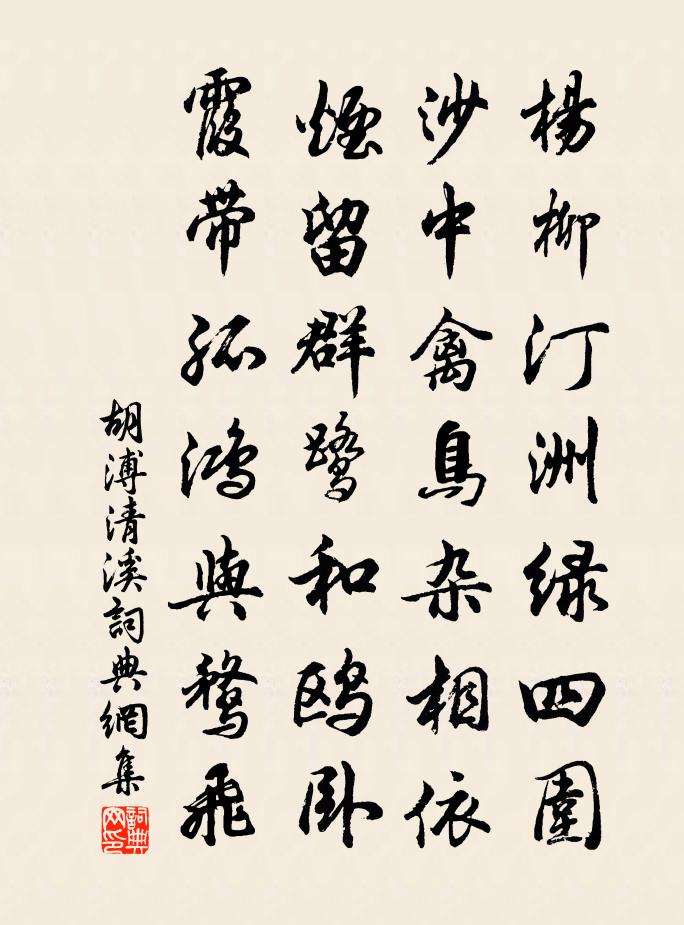 楊柳汀洲绿四圍
沙中禽鳥杂相依
煙留群鹭和鸥卧
霞带孤鸿與鹜飛
胡溥清溪詞典網集
詞典
网印